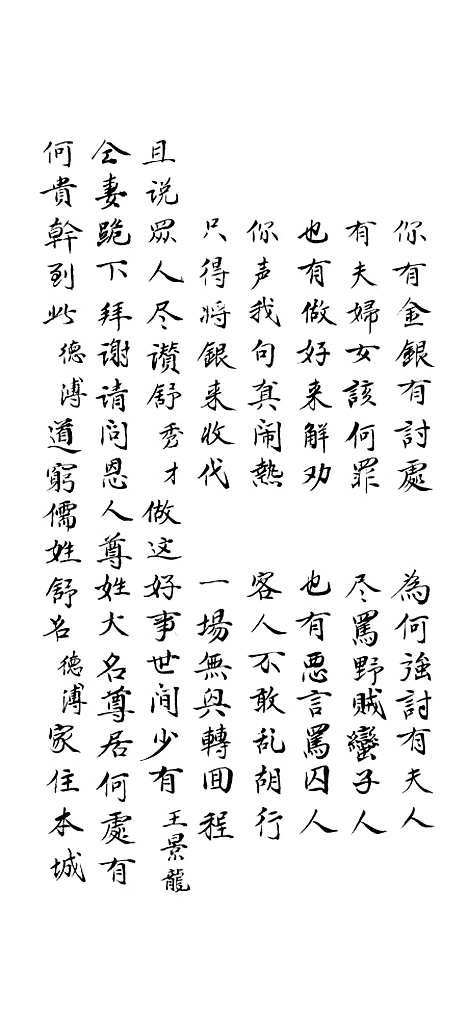 你有金銀有討處 為何強討有夫人
有夫婦女該何罪 尽罵野賊蠻子人
也有做好来解劝 也有悪言罵囚人
你声我句真闹熱 客人不敢乱胡行
只得将銀来收伐 一場無與轉回程
且说眾人尽讚舒秀才做这好事世间少有王景龍
仝妻跪下拜谢请问恩人尊姓大名尊居何處有
何貴幹到此德溥道窮儒姓舒名德溥家住本城